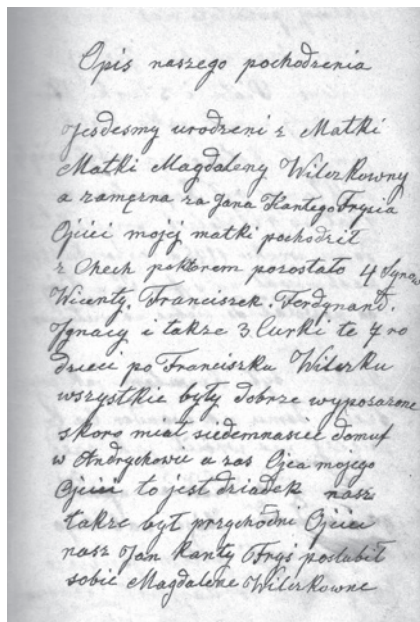 Opis naszego pochodzenia
Jesdesmy urodzeni z Matki
Matki Magdaleny Wilczkowny
a zamęzna za Jana Kantego Frysia
Ojcici mojej matki pochodził
z Chech poktorem pozostało 4 Synow
Wicenty, Franciszek. Ferdynand.
Ignacy i takze 3 Curki te 7 ro
dzieci po Franciszku Wilczku
wszystkie były dobrze wyposazone
skoro miał siedemnascie domuf
w Andrychowie a zas Ojca mojego
Ojcici to jest dziadek nasz
takze był przychodni Ojcici
nasz Jan Kanty Fryś poslubił
sobie Magdalene Wilczkowne